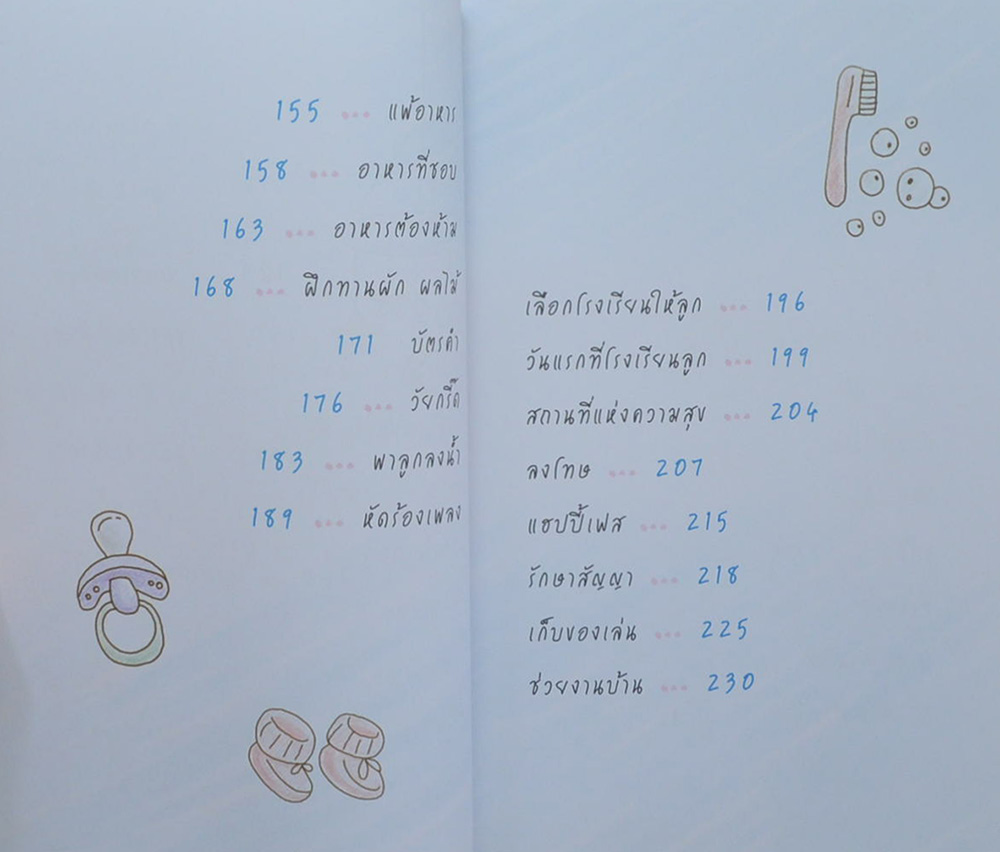 155 ... แพ้อาหาร
158 ... อาหารที่ชอบ
163 ... อาหารต้องห้าม
168 ... ฝึกทานผัก ผลไม้
171 บัตรคำ
176 ... วัยกรี๊ด
183 ... พาลูกลงน้ำ
189 ... หัดร้องเพลง
เลือกโรงเรียนให้ลูก ... 196
วันแรกที่โรงเรียนลูก ... 199
สถานที่แห่งความสุข ... 204
ลงโทษ ... 207
แฮปปี้เฟส ... 215
รักษาสัญญา ... 218
เก็บของเล่น ... 225
ช่วยงานบ้าน ... 230